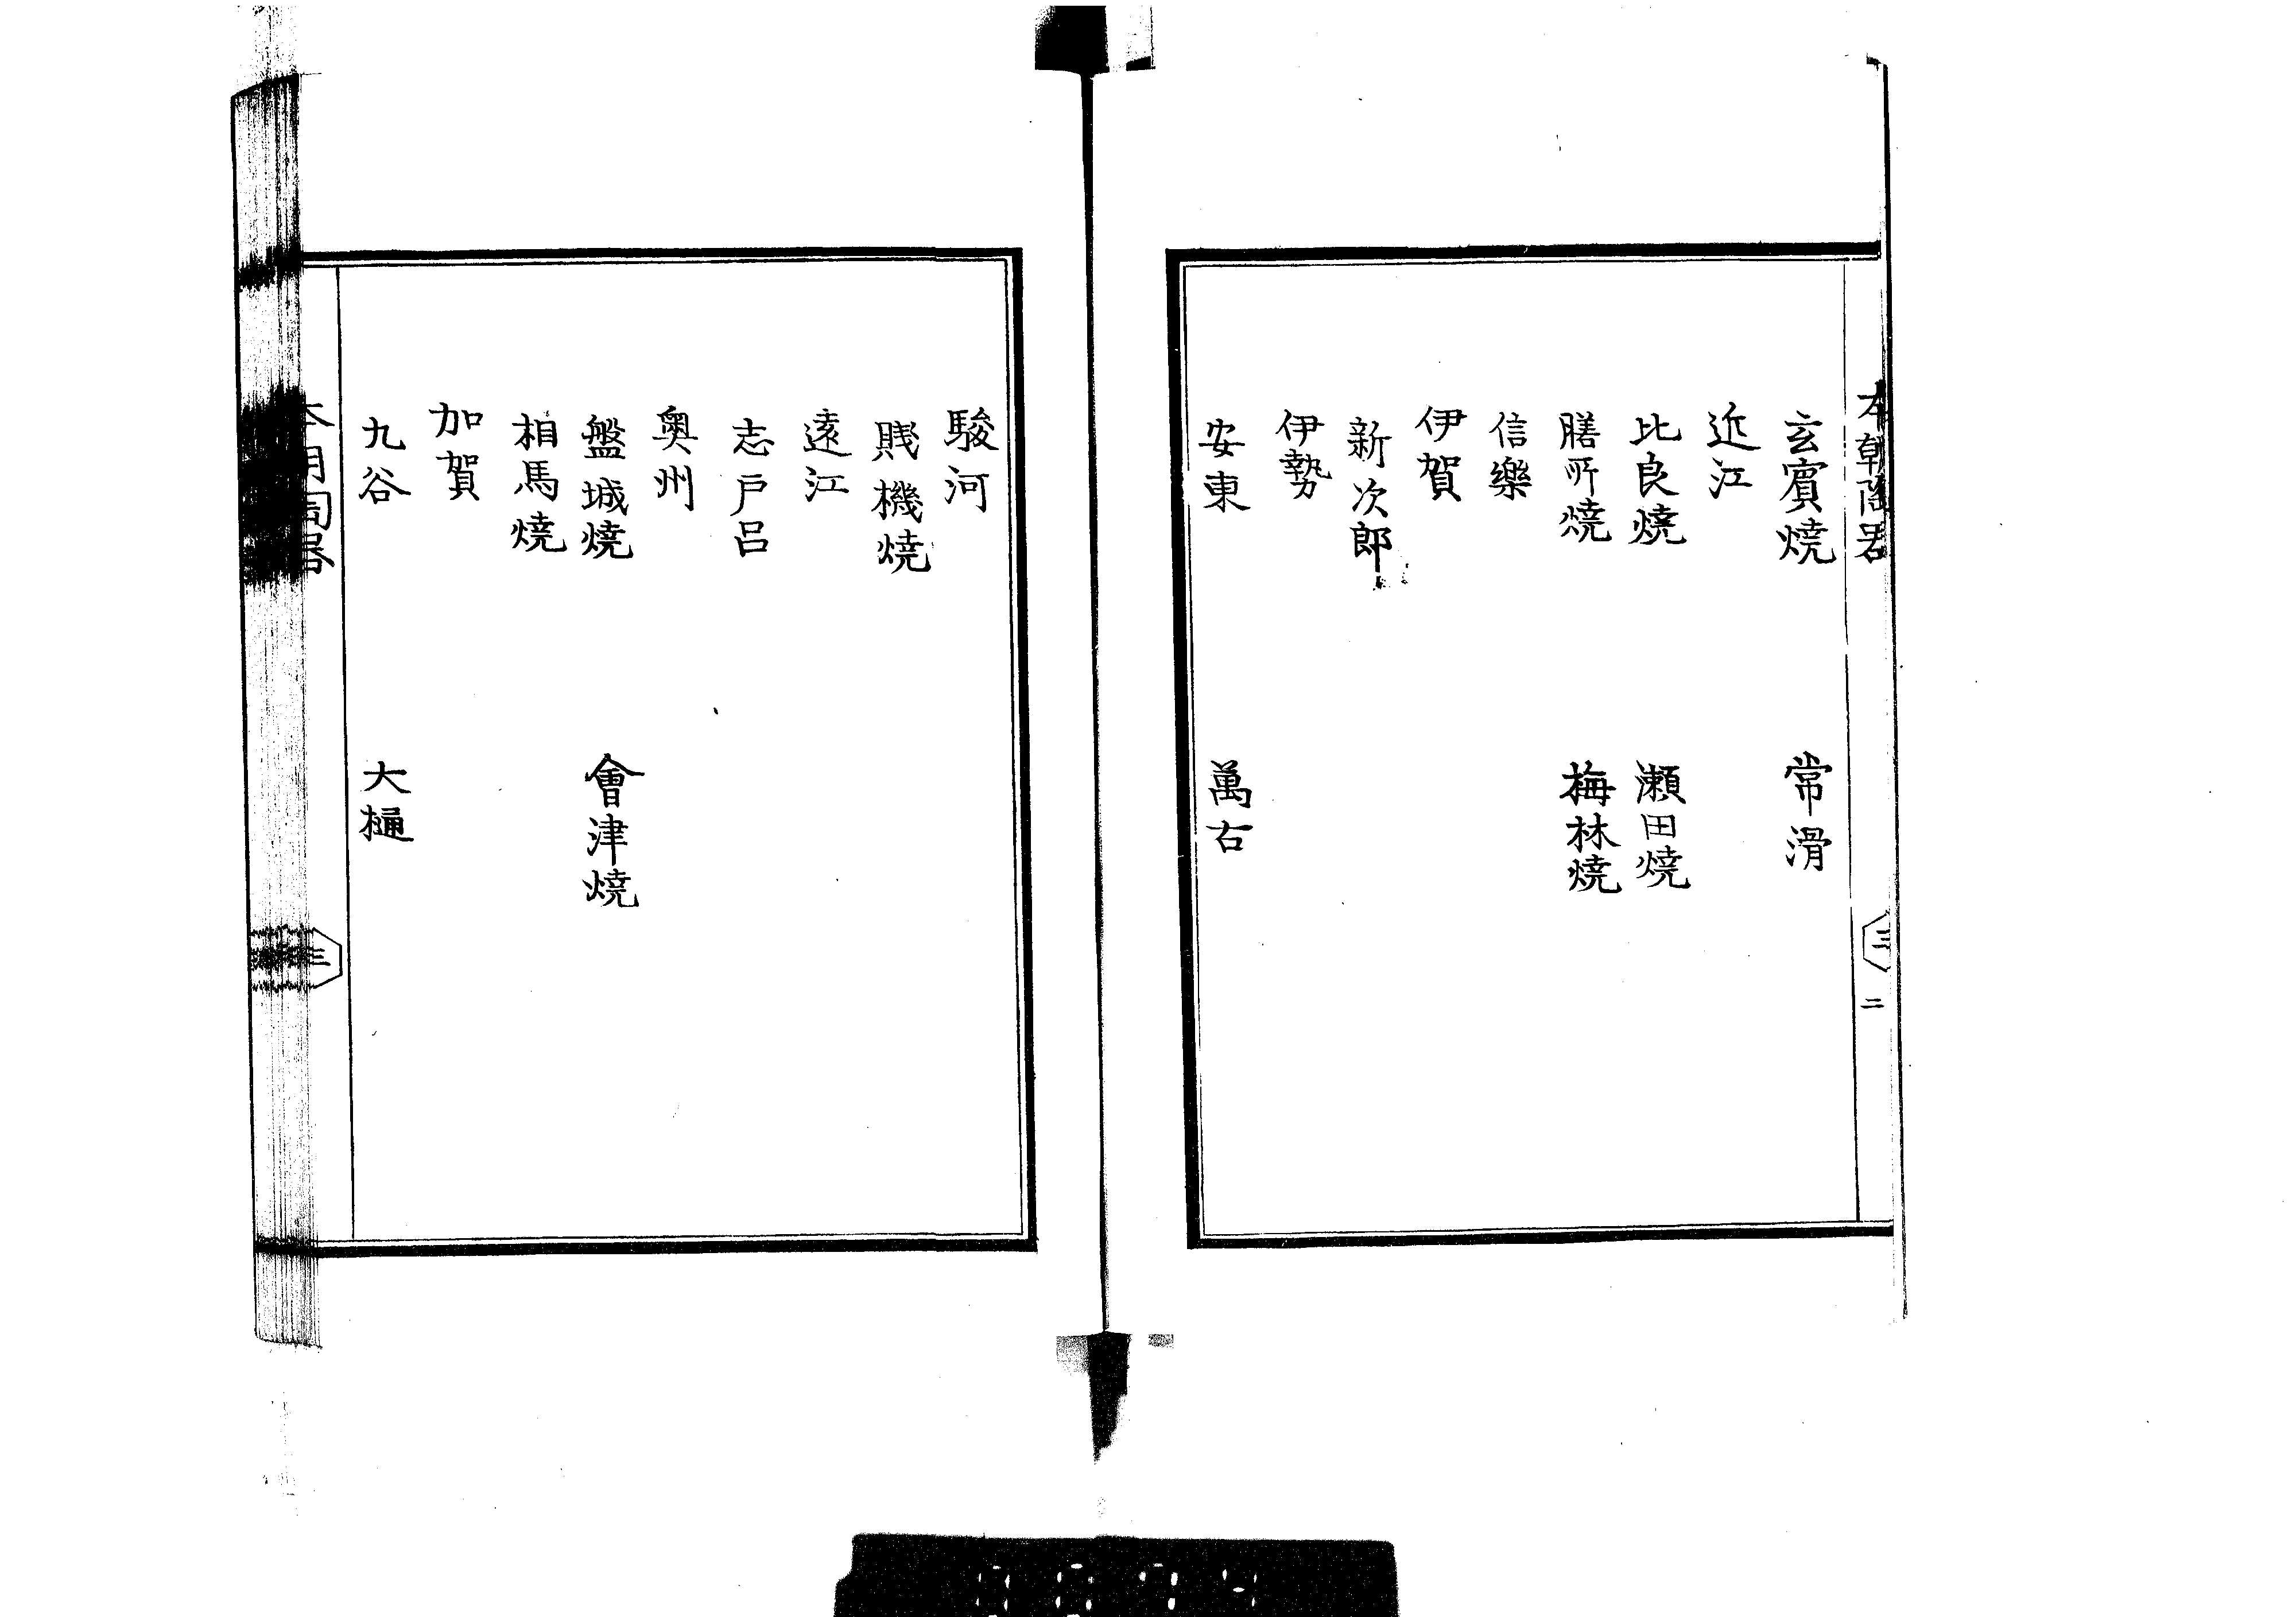 本朝陶器
三
二
玄賓燒 常滑
近江
比良燒 瀬田燒
膳所燒 梅林燒
信樂
伊賀
新次郎
伊勢
安東 萬古
駿河
賎機燒
遠江
志戸呂
奥州
盤城燒 會津燒
相馬燒
加賀
九谷 大樋
三